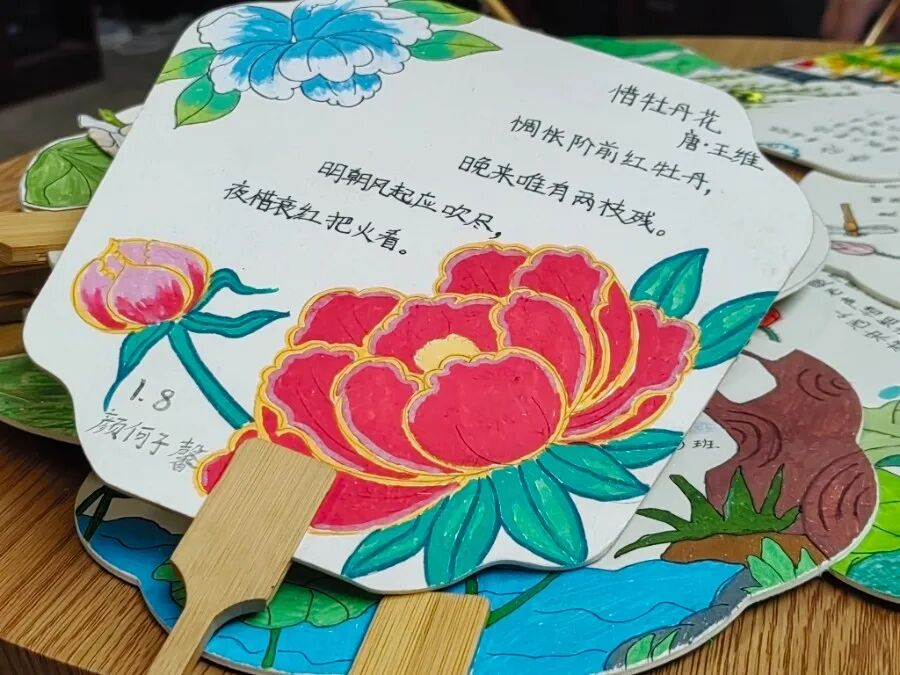 惜牡丹花
唐·王维
惆怅阶前红牡丹，
晚来唯有两枝残。
明朝风起应吹尽，
夜惜衰红把火看。
1.8
颜何子馨
班